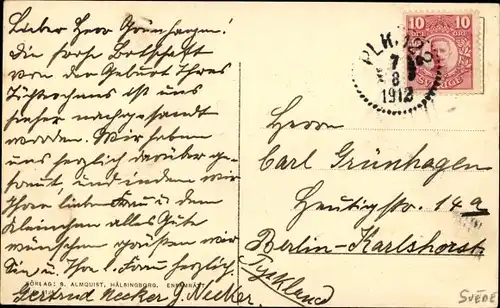 Lieber Herr Grünhagen!
Die frohe Botschaft
von der Geburt Ihres
Töchterchens ist uns
hierher nachgesandt
worden. Wir haben
uns herzlich darüber ge-
freut, und indem wir
Ihrer lieben Frau u. dem
Kleinchen alles Gute
wünschen grüßen wir
Sie u. Ihre l. Frau herzlich.
Gertrud Necker J. Necker.
FÖRLAG: S. ALMQUIST, HÄLSINGBORG. ENSAMRÄTT
10 10
SVERIGE
PLK. 122
7
8
1912
Herrn
Carl Grünhagen
Hentigstr. 14a
Berlin-Karlshorst
Tyskland
SUÈDE